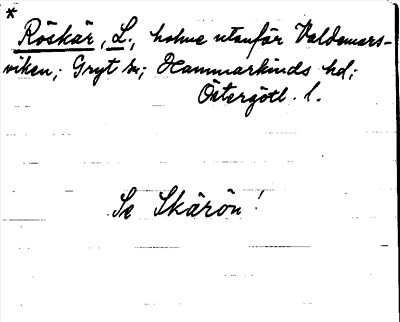 *
Röskär, L., holme utanför Valdemars-
viken; Gryt sn; Hammarkinds hd;
Östergötl. l.
Se Skärön!